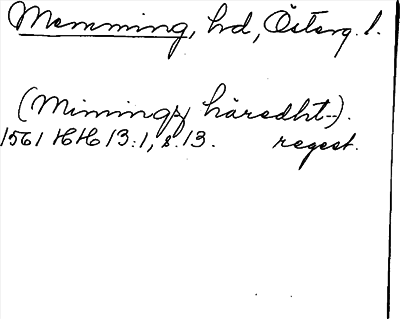 Memming, hd, Österg. l.
(Mimingx häredht--).
1561 HH 13:1, s. 13. regest.